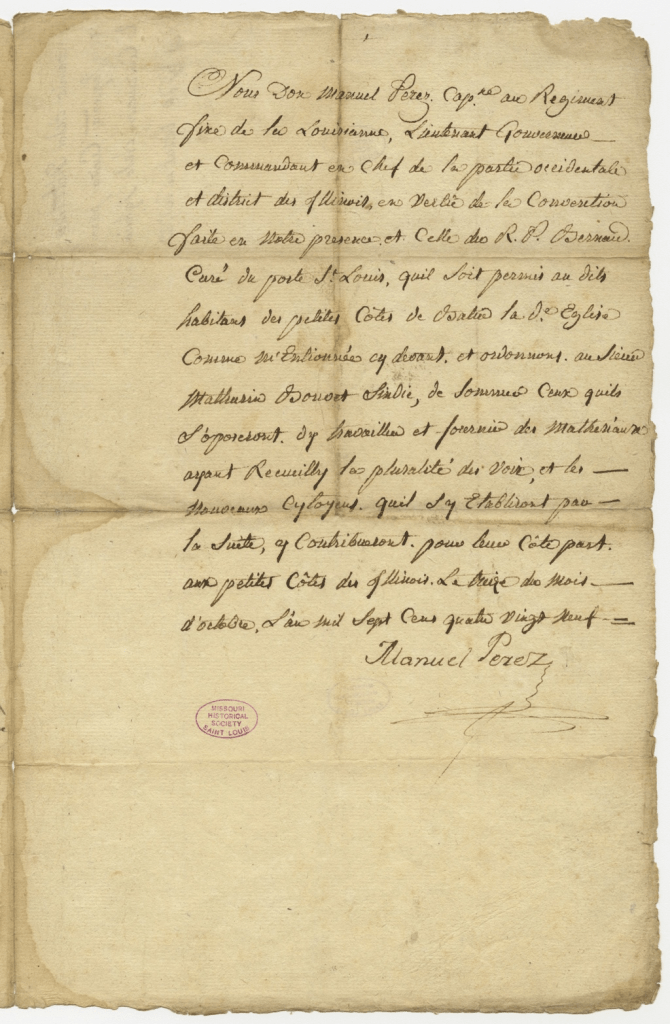 Nous Don Manuel Perez. Cap.ne au Regiment
fixe de la Louisianne, Lieutenant Gouverneur
et Commandant en Chef de la partie occidentale
et district des Illinois, en Vertu de la Convention
faite en Notre presence, et Celle du R. P. Bernard.
Curé du poste St. Louis, quil soit permis au dits
habitans des petites Côtes de Batir la d.e Eglise
Comme m'Entionnée cy devant. et ordonnons. au Sieur
Mathurin Bouvet Sindic, de Sommer Ceux quils
S'oposeront. d'y travailler et fournir des Matheriaux
ayant Recueilly la pluralité des Voix, et les
Nouveaux Cytoyens. quil S'y Etabliront par
la Suite, y Contribueront. pour leur Côte part.
aux petites Côtes des Illinois. Le treize du mois
d'octobre, L'an mil Sept Cens quatre Vingt Neuf
Manuel Perez
MISSOURI
HISTORICAL
SOCIETY
SAINT LOUIS